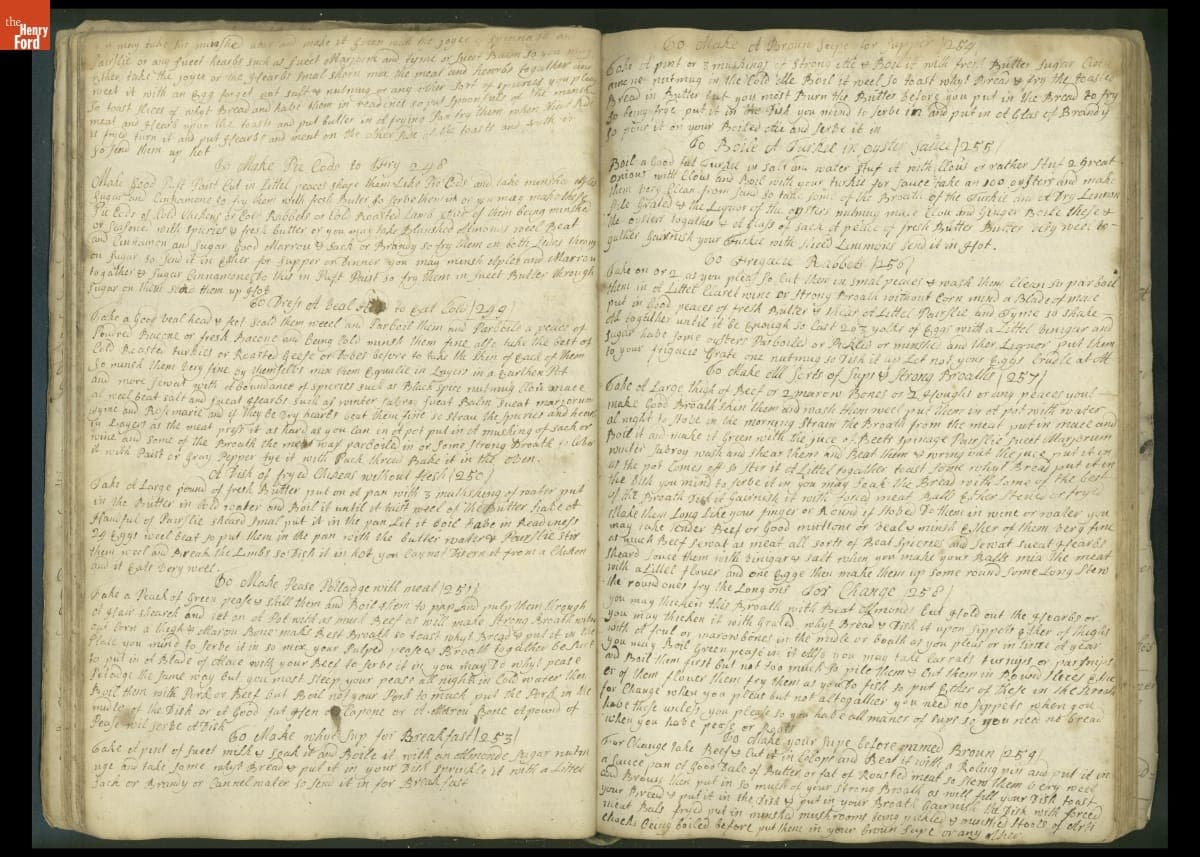 the
Henry
Ford
may take his minshed and make it Green with the joyce of Spinnash or
Parslie or any sweet hearbs such as sweet Marjorm and tyme or sweet Baum so you may
Ether take the joyce or the Hearbs smal shorn mix the meat and hearbs together and
weet it with an Egg forget not salt & nutmug or any other sort of spiceries you pleas
So toast slices of whyt Bread and habe them in readines so put spoonfuls of the minsh
meat and Hearb upon the toasts and put butter in a frying Pan fry them when that side
is fryed turn it and put Hearbs and meat on the other side of the toasts and
so send them up hot
To Make Pie Cods to Fry 248
Make Good Puft Paist Cut in Littel peaces shape them Like Pie Cods and take minshed
Sugar and Cinnamone to fry them with fresh Buter so serbe them or you may make these
Pie Cods of Cold Chickens or Cold Rabbets or Cold Roasted Lamb of them being minshed
or seasone with spicries & fresh butter or you may take Blanshed Almonds weel Beat
and Cinnamon and Sugar Good Marrow & Sack or Brandy so fry them on both sides throw
on Sugar so Send it in Ether for supper or dinner you may minsh Aples and Marrow
together & Sugar Cinnamone to this in Puft Paist so fry them in sweet Butter through
Sugar on them send them up Hot
To Dress A Veal to Eat Cold 249
Take a Good veal head & feet scald them weel and Parboil them and Parboile a peace of
Poudred Bacone or fresh Bacone and being cold minsh them fine also take the best of
Cold Roasted turkies or Roasted Geese or before to take the skin of Each of them
So minsh them very fine by themselfs mix them Equalie in Layers in a Earthen Pot
and more Sewat with aboundance of spiceries such as Black Spice nutmug Clow mace
al weel beat salt and sweat Hearbs such as winter Sabroy sweat Balm sweat marjorum
tyme and Rosemarie and if they be Dry hearbs beat them fine so straw the spicries and hearbs
in Layers as the meat press it as hard as you can in a pot put in A muchking of sack or
wine and some of the Broath the meat was parboiled in or some Strong Broath to
it with Paist or Gray Pepper tye it with Pack thread Bake it in the oven.
A Dish of fryed Chikens without flesh 250
Take A Large pound of fresh Butter put on A pan with 3 mutshkins of water put
in the Butter in cold water and Boil it until it tast weel of the Butter take A
Handful of Parslie sheard smal put it in the pan Let it boil habe in Readiness
24 Eggs weel beat so put them in the pan with the butter water & Parslie stir
them weel and Break the Limbs so Dish it in hot you Cay not Discern it from a Chiken
and it Eats very weel.
To Make Pease Pottadge with meat 251
Take A Peack of Green pease & shill them and Boil them to pap and pulp them through
A Hair shearch and set on A Pot with as much Beef as will make Strong Broath when
our born a thigh & Marow Bone makes Best Broath so toast whyt Bread & put it in the
Place you mind to serbe it in so mix your Pulped pease & Broath together be sure
to put in A Blade of Mace with your Beef to serbe it in you may Do whyt pease
Potadge the same way but you most steep your pease all night in Cold water then
Boil them with Pork or Beef but Boil not your Pork to much put the Pork in the
midle of the Dish or A Good fat Hen A Capone or A Marou Bone A pound of
Pease will serbe A Dish
To Make whyt Sup for Breakfast 253
Take A pint of sweet milk & soak it and Boile it with an Almonde Sugar nutm
uge an take some whyt Bread & put it in your Dish Sprinkle it with a Littel
Sack or Brandy or Cannel water so Send it in for Breakfast
To Make A Brown Supe for Supper 254
Take A pint or 3 mushings of Strong Ale & Boil it with fresh Butter Sugar Cinna
mone nutmug in the Cold Ale Boil it weel so toast whyt Bread & fry the toasted
Bread in Butter but you most Burn the Butter before you put in the Bread to fry
So being frye put it in the Dish you mind to serbe in and put in A Glas of Brandy
So pour it on your Boiled Ale and Serbe it in
To Boile A Turkie in oyster Sauce 255
Boil A Good fat Turkie in salt and water Stuf it with Clows or rather Stuf 2 Great
onions with Clows and Boil with your turkie for sauce take an 100 oysters and make
them very Clean from sand so take some of the Broath of the Turkie and A Dry Lemmon
Pile Grated & the Liquor of the oysters nutmug mace Clou and Ginger Boile these &
the oysters together & A glass of sack A peace of fresh Butter Butter very weel to-
gather Garnish your Turkie with sliced Limmons Send it in Hot.
To Fregacie Rabbets 256
Take on or 2 as you pleas so Cut ther in smal peaces & wash them Clean so parboil
them in A Littel Claret wine or Strong Broath without Corn mind A Blade of mace
put in Good peaces of fresh Butter & shear of Littel Parslie and Tyme so shake
Al together until it be Enough so Cast 2 or 3 yolks of Eggs with a Littel Vinigar and
Sugar habe some oysters Parboiled or Pickled or minshed and ther Liquor put them
to your frigacie Grate one nutmug so Dish it up Let not your Eggs Crudle at All
To Make All Sorts of Sups & Strong Broaths 257
Take A Large thigh of Beef or 2 marow Bones or 2 Houghs or any peaces youl
make Good Broath skin them and wash them weel put them in A pot with water
al night to Stobe in the morning Strain the Broath from the meat put in mace and
Boil it and make it Green with the juce of Beets Spinage Parslie Sweet Marjorum
winter Sabroy wash and shear them and Beat them & wring out the juce put it in
as the pot Comes off so stir it A Littel together toast Some whyt Bread put it in
the Dish you mind to serbe it in you may soak the Bread with some of the best
of the Broath Dish it Garnish it with forced meat Balls Ether Stewed or fryed
Make them Long Like your finger or Round if Stobed Do them in wine or water you
may take tender Beef or Good muttone or veal & minsh Ether of them very fine
as much Beef Sewat as meat all sorts of Beat Spiceries and Sewat sweat Hearbs
Sheard souce them with vinigar & salt when you make your Balls mix the meat
with a Littel flower and one Egge then make them up some round some Long Stew
the round ones fry the Long ons For Change 258
You may thicken this Broath with Beat Almonds but hold out the Hearbs or
you may thicken it with Grated whyt Bread & Dish it upon Sippets Ether of thighs
with A foul or marowbones in the midle or boath as you pleas or in time of year
you may Boil Green pease in it also you may take Carrats turnips or parsnips
and Boil them first but not too much so pile them & Cut them in Round Slices & Ether
er of them flower them fry them as you do fish so put Ether of these in the Broath
for Change when you pleas but not altogether you need no Sippets when you
habe these unless you please so you habe all maner of Sups so you need no bread
when you habe pease or Roots
To Make your Supe before named Broun 259
For Change take Beef & Cut it in Colops and Beat it with a Roling pin and put it in
a sauce pan of Good Dale of Butter or fat of Roasted meat so stew them very weel
and Broun then put in so much of your strong Broath as will fill your Dish toast
your Bread & put it in the Dish & put in your Broath Garnish the Dish with forced
meat Bals fryed put in minshed mushrooms being pickled & minshed Stools of Arti
choaks Being boiled before put them in your broun Supe or any other.